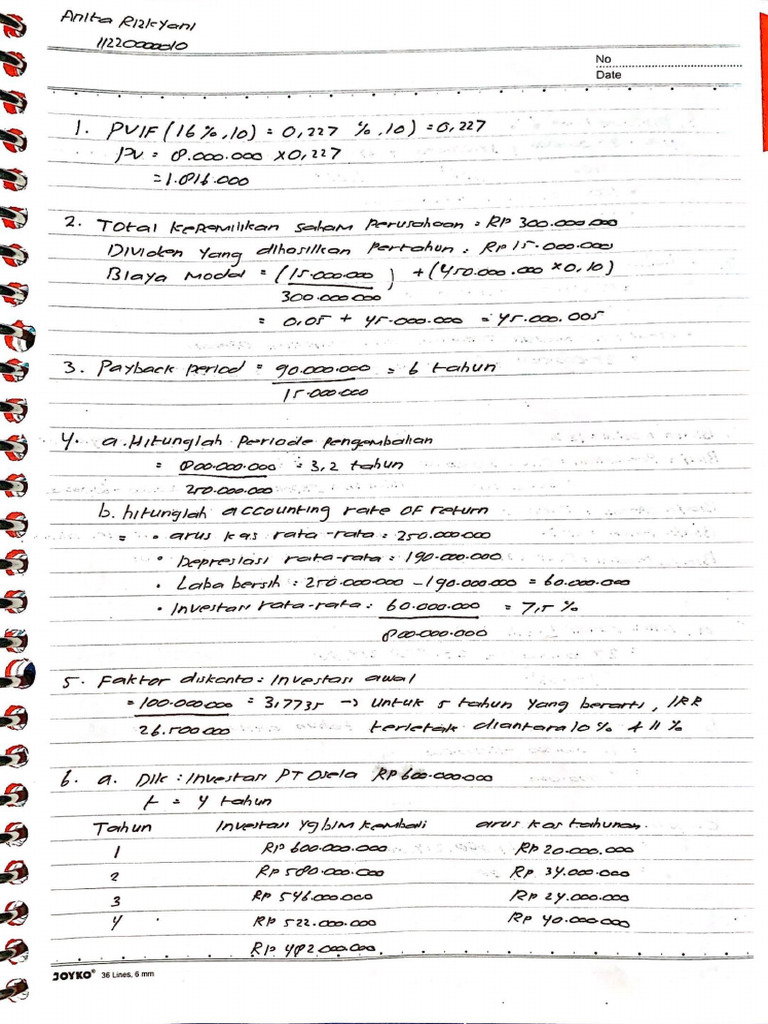 Anita Rizkyani
1122000010
No
Date
1. PVIF (16 %, 10) = 0,227 %, 10) = 0,227
PV = 8.000.000 x 0,227
= 1.816.000
2. Total kepemilikan saham perusahaan = RP 300.000.000
Dividen yang dihasilkan pertahun : RP 15.000.000
Biaya modal = (15.000.000 / 300.000.000) + (450.000.000 x 0,10)
= 0,05 + 45.000.000 = 45.000.005
3. Payback period = 90.000.000 / 15.000.000 = 6 tahun
4. a. Hitunglah Periode pengembalian
= 800.000.000 / 250.000.000 = 3,2 tahun
b. hitunglah accounting rate of return
= • arus kas rata-rata : 250.000.000
• Depresiasi rata-rata : 190.000.000
• Laba bersih : 250.000.000 - 190.000.000 = 60.000.000
• Investasi rata-rata : 60.000.000 / 800.000.000 = 7,5 %
5. Faktor diskonto : Investasi awal
= 100.000.000 / 26.500.000 = 3,7735 -> untuk 5 tahun yang berarti, IRR
terletak diantara 10 % + 11 %
6. a. Dik : Investasi PT Osela RP 600.000.000
t = 4 tahun
Tahun Investasi yg blm kembali arus kas tahunan
1 RP 600.000.000 RP 20.000.000
2 RP 580.000.000 RP 34.000.000
3 RP 546.000.000 RP 24.000.000
4 RP 522.000.000 RP 40.000.000
RP 482.000.000
JOYKO® 36 Lines, 6 mm